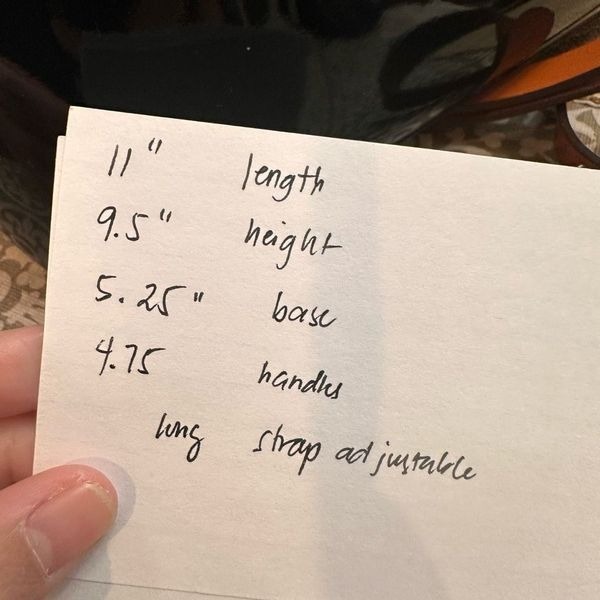 11" length
9.5" height
5.25" base
4.75 handles
long strap adjustable